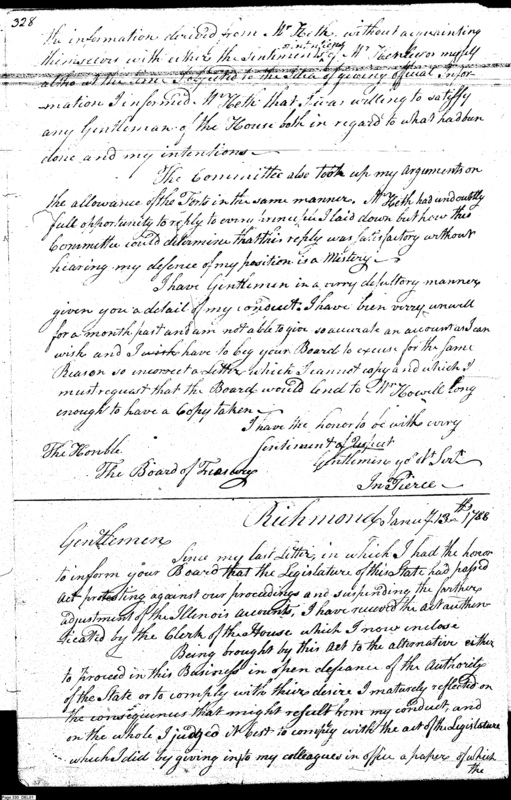 328
the information derived from Mr Heth, without acquainting
themselves with either the sentiments intentions of Mr or myself
altho at the time I objected to the Idea of giving official Infor-
-mation I informed Mr Heth that I was willing to satisfy
any Gentleman of the House both in regard to what had been
done and my intentions —
The Committee also took up my arguments on
the allowance of the Forts in the same manner. Mr Heth had undoubtedly
full opportunity to reply to every I laid down but how this
Committee could determine that his reply was satisfactory without
hearing my defence of my position is a Mistery —
I have Gentlemen in a verry desultory manner
given you a detail of my conduct. I have been verry unwell
for a month past and am not able to give so accurate an account as I can
wish and I wish have to beg your Board to excuse for the same
Reason so incorrect a Letter which I cannot copy and which I
must request that the Board would lend to Mr Howell long
enough to have a Copy taken —
I have the honor to be with every
Sentiment of Respect
The Honble
Gentlemen yr obt Servt
The Board of Treasury
Jn Pierce —
Richmond Januy 13th 1788
Gentlemen
Since my last Letter, in which I had the honor
to inform your Board that the Legislature of this State had passed
Act protesting against our proceedings and suspending the farther
adjustment of the Illinois accounts, I have received the act authen-
ticated by the Clerk of the House which I now inclose
Being brought by this Act to the alternative either
to proceed in this Business in open defiance of the Authority
of the State or to comply with their desire I maturely reflected on
the consequences that might result from my conduct, and
on the whole I judged it best to comply with the act of the Legislature
which I did by giving into my colleagues in office a paper of which
the